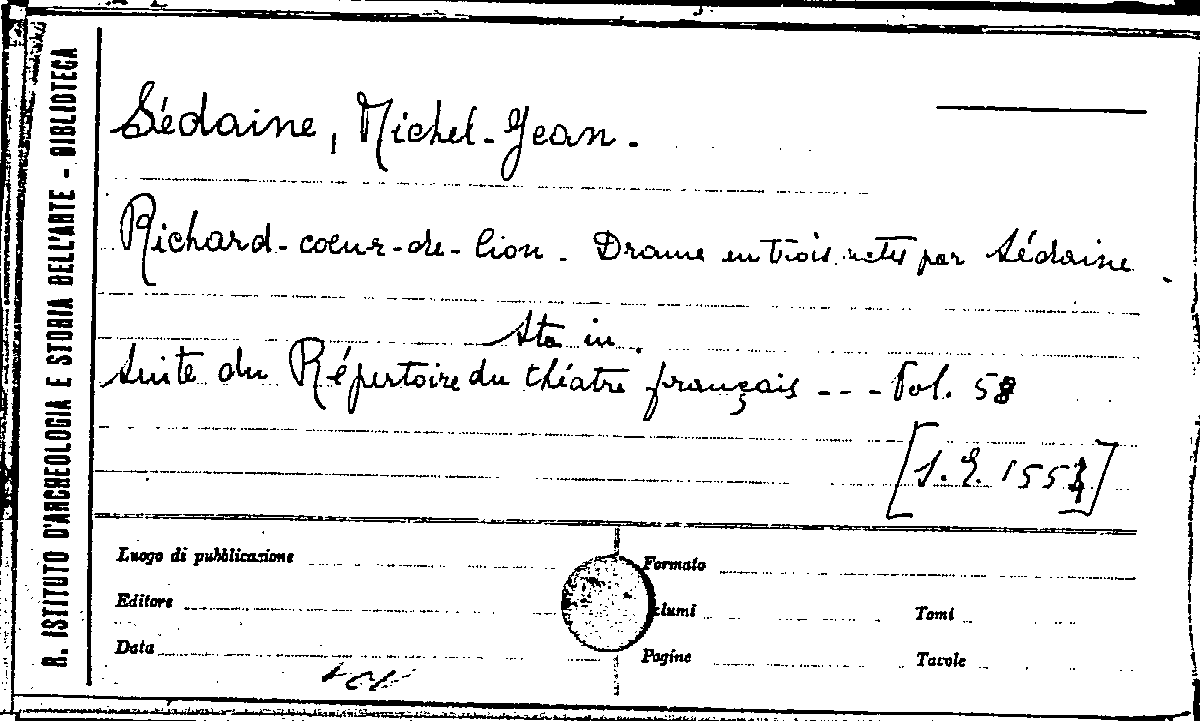 R. ISTITUTO D'ARCHEOLOGIA E STORIA DELL'ARTE - BIBLIOTECA
Sédaine, Michel-Jean.
Richard-coeur-de-lion. Drame en trois actes par Sédaine.
Sta in.
Suite du Répertoire du théatre français --- Vol. 58
[S.E. 155
Luogo di pubblicazione
Formato
Editore
Volumi
Tomi
Data
Pagine
Tavole